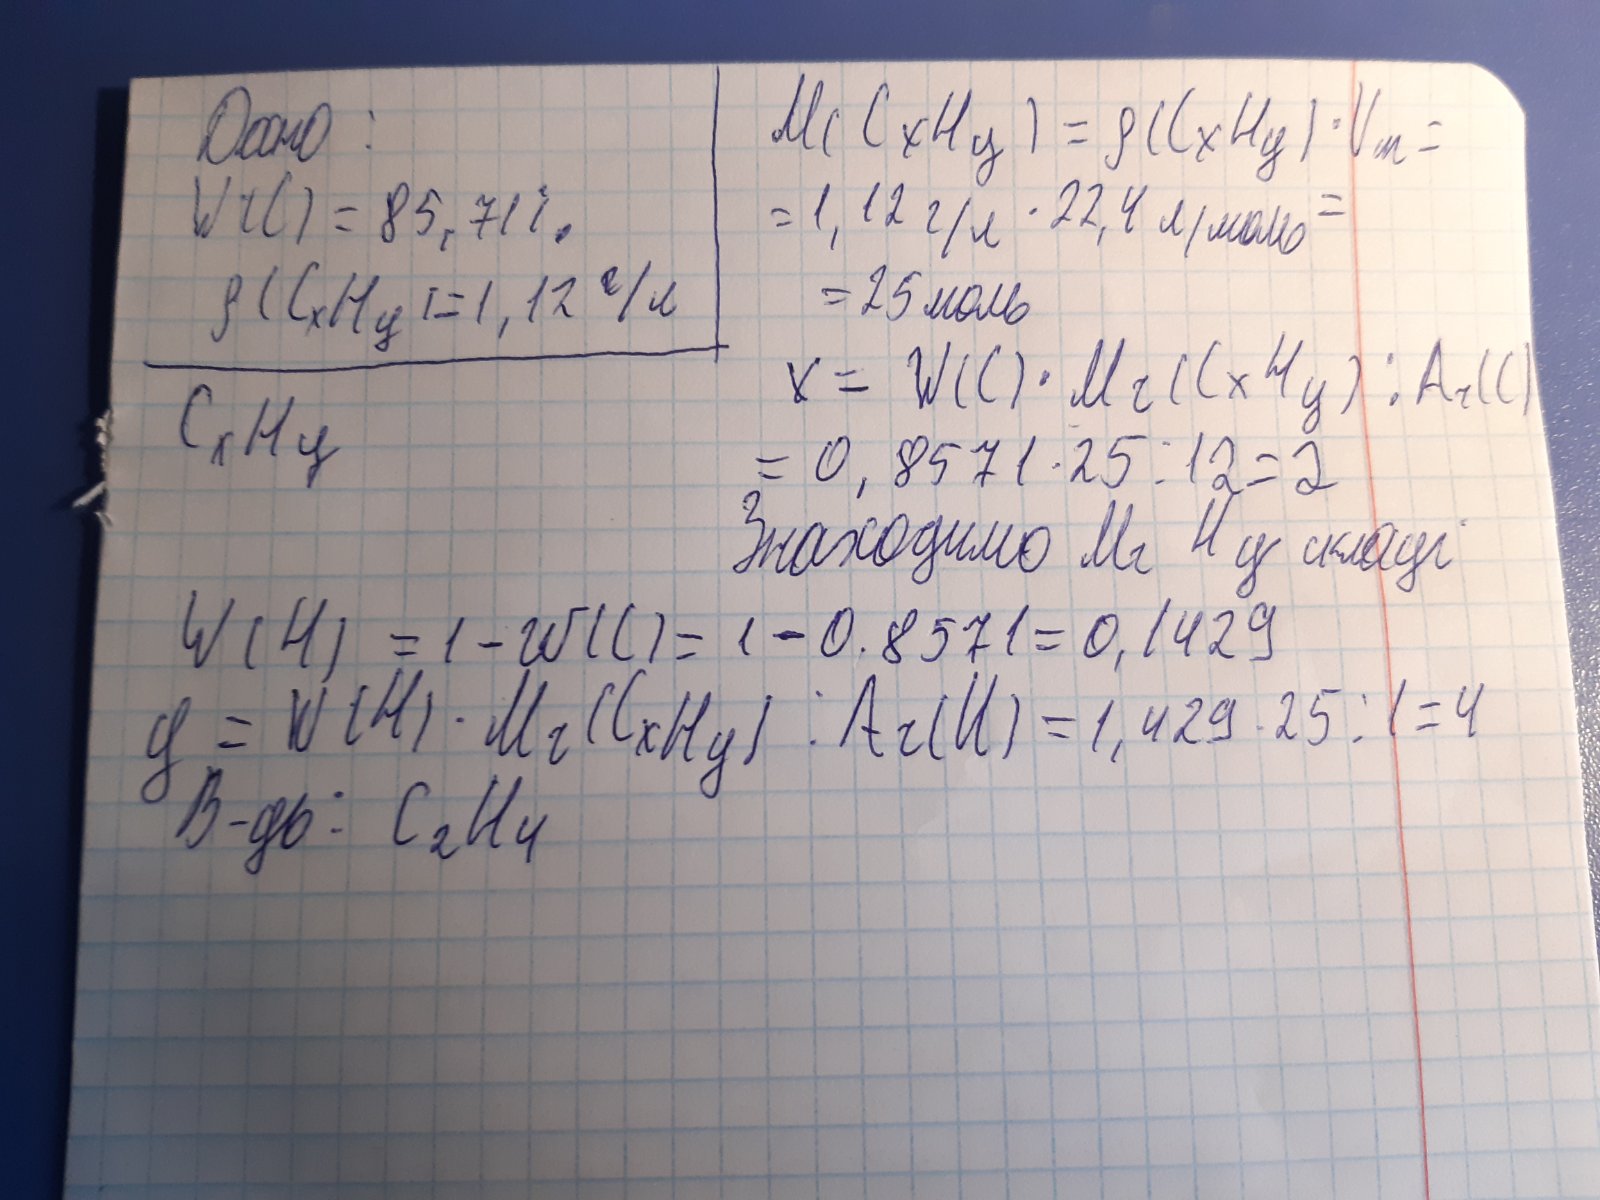 Дано:
W(C) = 85,71%.
ρ(CxHy) = 1,12 г/л
CxHy
M(CxHy) = ρ(CxHy)·Vm =
= 1,12 г/л · 22,4 л/моль =
= 25 моль
x = W(C)·Mr(CxHy):Ar(C)
= 0,8571·25:12=2
Знаходимо Mr H у складі
W(H) = 1 - W(C) = 1 - 0.8571 = 0,1429
y = W(H)·Mr(CxHy):Ar(H) = 1,429·25:1=4
В-дь: C2H4